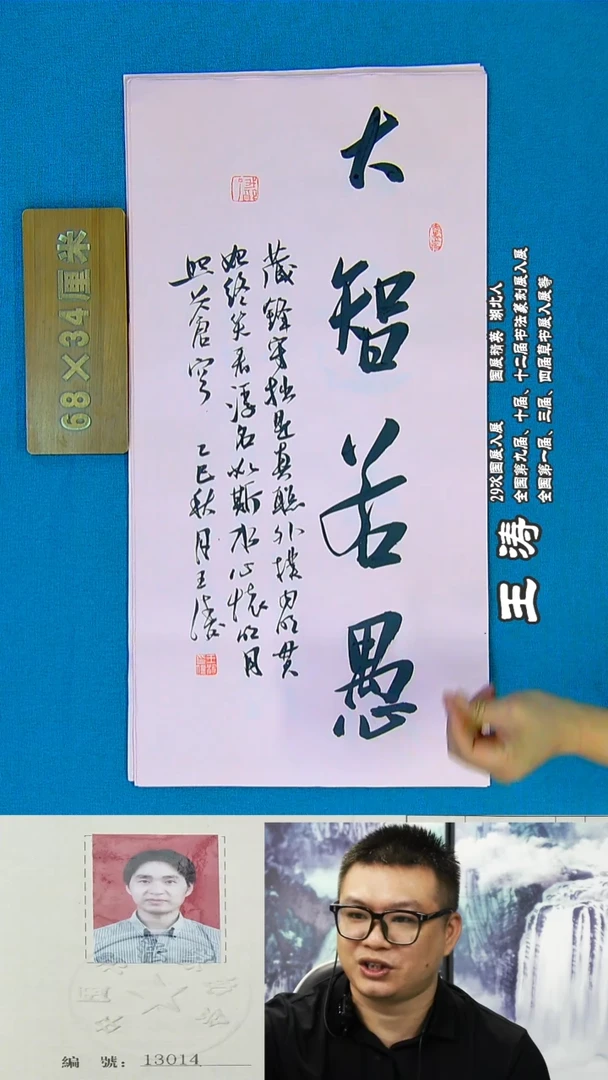 大智若愚
藏锋守拙是真聪外朴内明贯
始终笑看浮名如斯水心怀明月
照苍穹 乙巳秋月王涛
68×34厘米
29次国展入展 国展精英 湖北人
全国第九届、十届、十二届书法篆刻展入展
全国第一届、三届、四届草书展入展等
王涛
編 號：13014